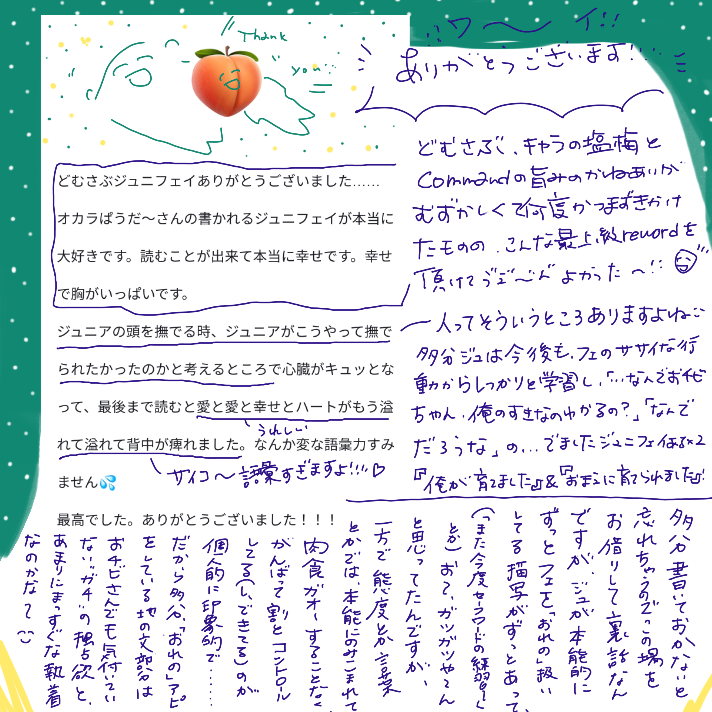 Thank
you
ワ〜イ!!
ありがとうございます!!
どむさぶジュニフェイありがとうございました……
オカラぱうだ〜さんの書かれるジュニフェイが本当に
大好きです。読むことが出来て本当に幸せです。幸せ
で胸がいっぱいです。
ジュニアの頭を撫でる時、ジュニアがこうやって撫で
られたかったのかと考えるところで心臓がキュッとな
って、最後まで読むと愛と愛と幸せとハートがもう溢
うれしい
れて溢れて背中が痺れました。なんか変な語彙力すみ
ません💦
サイコ〜語彙すぎますよ!!!♡
最高でした。ありがとうございました！！！
どむさぶ、キャラの塩梅と
Commandの旨みのかねあいが
むずかしくて何度かつまずきかけ
たものの、こんな最上級rewordを
頂けてよかった〜!!
人ってそういうところありますよね
多分ジュは今後も、フェのササイな行
動からしっかりと学習し、「…なんでお代
ちゃん、俺のすきなのわかるの?」「なんで
だろうな」の…でましたジュニフェイあるx2
『俺が育てました』&『おまえに育てられました』!
多分書いておかないと
忘れちゃうのでこの場を
お借りして裏話なん
ですが、ジュが本能的に
ずっとフェを「おれの」扱い
してる描写がずっとあって、
(また今度セーフワードの練習しよ
とか)おて、ガツガツやてん
と思ってたんですが、
一方で態度とか言葉
とかでは、本能にのみこまれて
肉食ガオーすることなく
がんばって割とコントロール
してる(し、できてる)のが
個人的に印象的で……
だから多分、「おれの」アピ
をしている地の文部分は
おチビさんでも気付いてい
ない"ガチ"の独占欲と、
あまりにまっすぐな執着
なのかなて